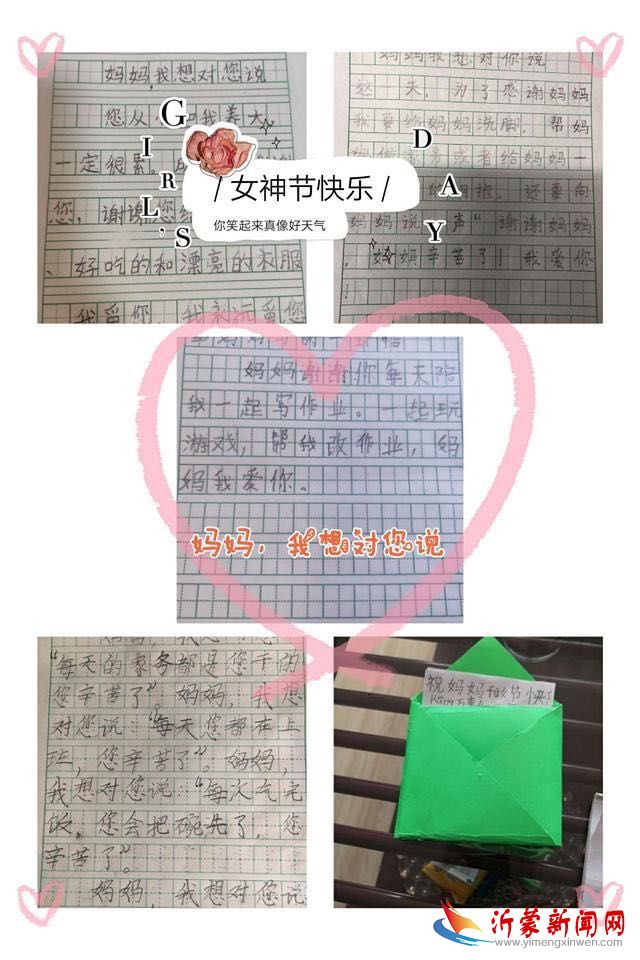 妈妈,我想对您说
您从 把我养大
一定很累。
您,谢谢您
、好吃的和漂亮的衣服
我爱你 我永远爱您
GIRL'S
/ 女神节快乐 /
你笑起来真像好天气
妈妈我想对你说
这一天,为了感谢妈妈
我要给妈妈洗脚,帮妈
妈做家务或者给妈妈一
还要向
妈妈说 声“谢谢妈妈
妈妈辛苦了!我爱你
!
DAY
妈妈谢谢你每天陪
我一起写作业。一起玩
游戏,帮我改作业,妈
妈我爱你。
妈妈,我想对您说
“每天的家务都是您干的
您辛苦了”。妈妈,我想
对您说“每天您都在上
班,您辛苦了”。妈妈,
我想对您说“每次吃完
饭,您会把碗洗了,您
辛苦了”。
妈妈,我想对您说
祝妈妈 节快
沂蒙新闻网
www.yimengxinwen.com